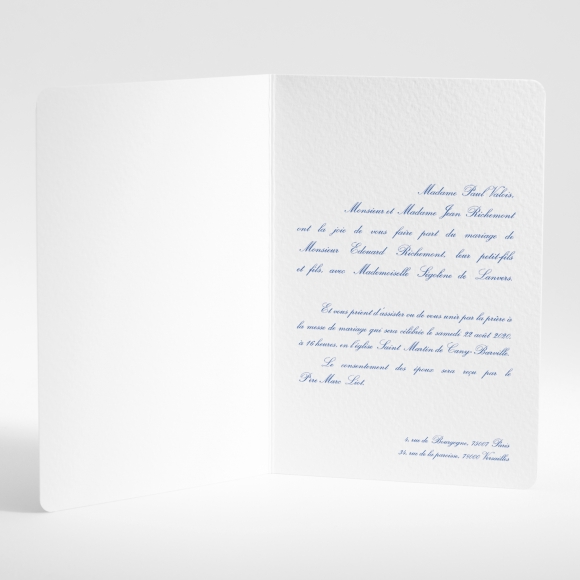 Madame Paul Valois,
Monsieur et Madame Jean Richemont
ont la joie de vous faire part du mariage de
Monsieur Edouard Richemont, leur petit-fils
et fils, avec Mademoiselle Sigolène de Lanvers.
Et vous prient d'assister ou de vous unir par la prière à
la messe de mariage qui sera célébrée le samedi 22 août 2020,
à 16 heures, en l'église Saint Martin de Cany-Barville.
Le consentement des époux sera reçu par le
Père Marc Liot.
4, rue de Bourgogne, 75007 Paris
34, rue de la paroisse, 78000 Versailles